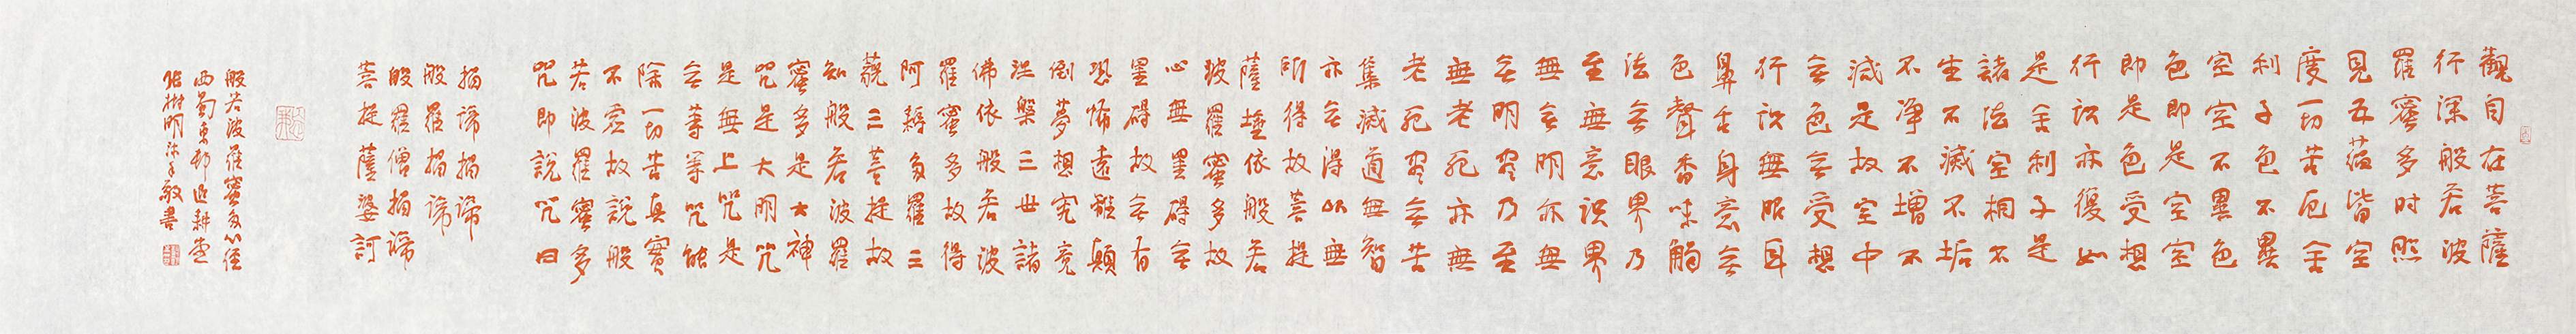 觀自在菩薩
行深般若波
羅蜜多时照
見五蕴皆空
度一切苦厄舍
利子色不異
空空不異色
色即是空空
即是色受想
行识亦復如
是舍利子是
諸法空相不
生不滅不垢
不净不增不
减是故空中
无色无受想
行识無眼耳
鼻舌身意无
色聲香味觸
法无眼界乃
至無意识界
無无明亦無
无明尽乃至
無老死亦無
老死尽无苦
集滅道無智
亦无得以無
所得故菩提
薩埵依般若
波羅蜜多故
心無罣碍无
罣碍故无有
恐怖遠離顛
倒夢想究竟
涅槃三世諸
佛依般若波
羅蜜多故得
阿耨多羅三
藐三菩提故
知般若波羅
蜜多是大神
咒是大明咒
是無上咒是
无等等咒能
除一切苦真實
不虚故說般
若波羅蜜多
咒即說咒曰
揭谛揭谛
般羅揭谛
般羅僧揭谛
菩提薩婆訶
般若波羅蜜多心经
西蜀东邨近耕堂
张樹明沐手敬書